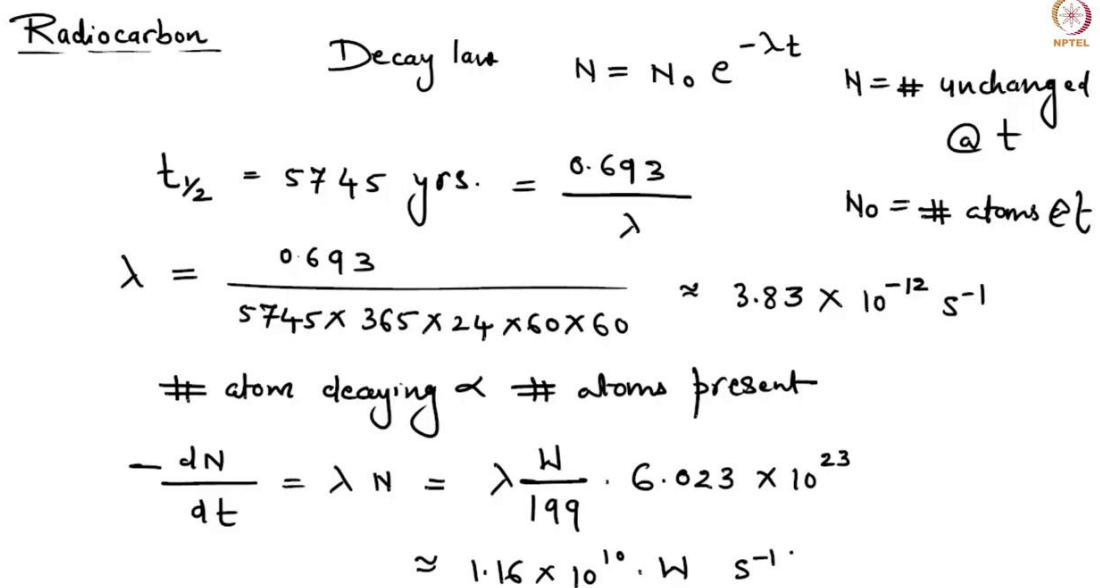 Radiocarbon
NPTEL
Decay law N = N₀ e^{-λt}
N = # unchanged
@ t
t_{1/2} = 5745 yrs. = 0.693 / λ
N₀ = # atoms @ t
λ = 0.693 / 5745 × 365 × 24 × 60 × 60 ≈ 3.83 × 10^{-12} s^{-1}
# atom decaying ∝ # atoms present
- dN / dt = λ N = λ W / 199 . 6.023 × 10^{23}
≈ 1.16 × 10^{10} . W s^{-1}.